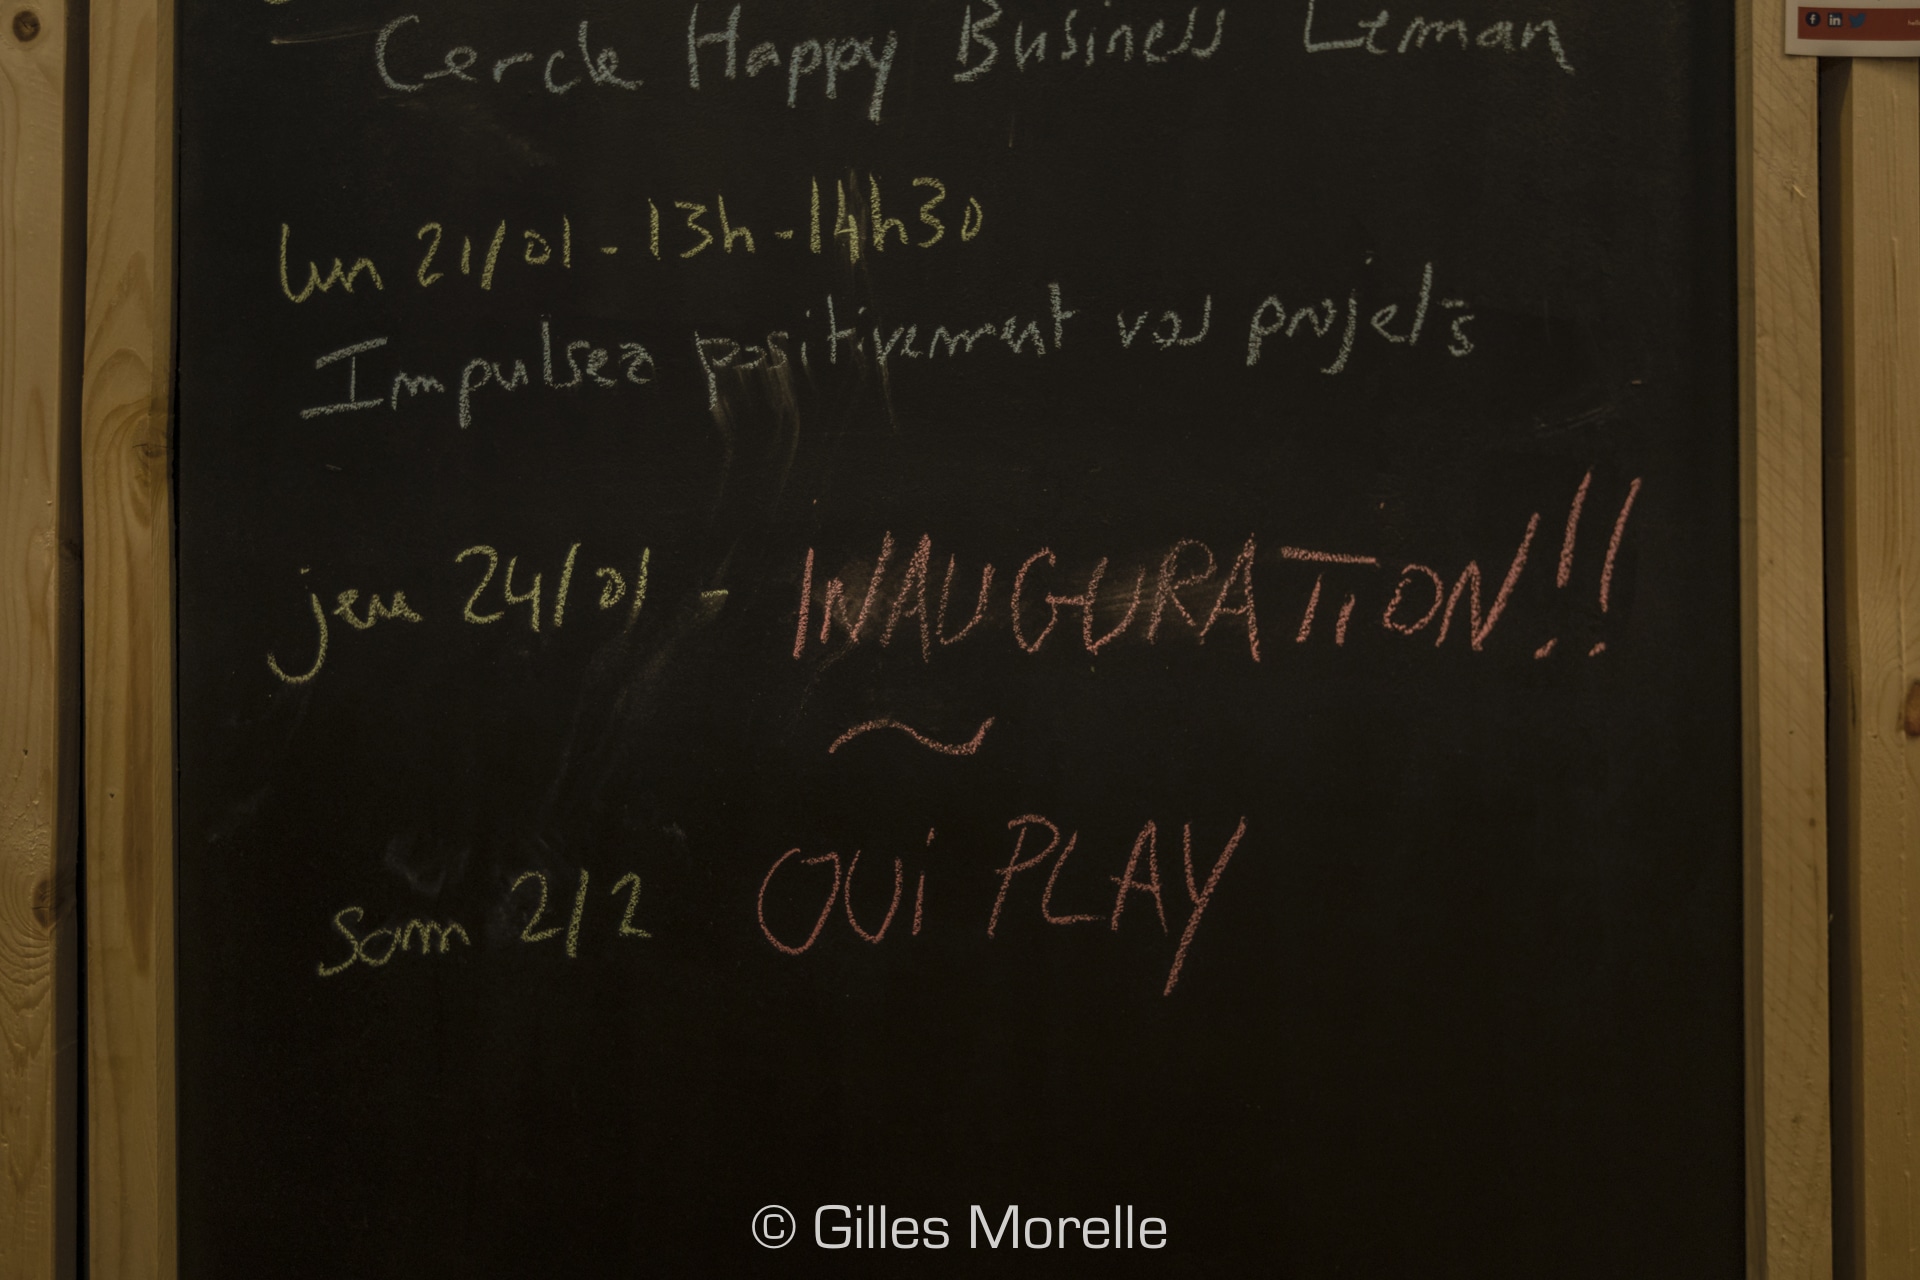 Cercle Happy Business Leman
lun 21/01 - 13h - 14h30
Impulsez positivement vos projets
jeu 24/01 - INAUGURATION!!
sam 2/2 OUi PLAY
© Gilles Morelle